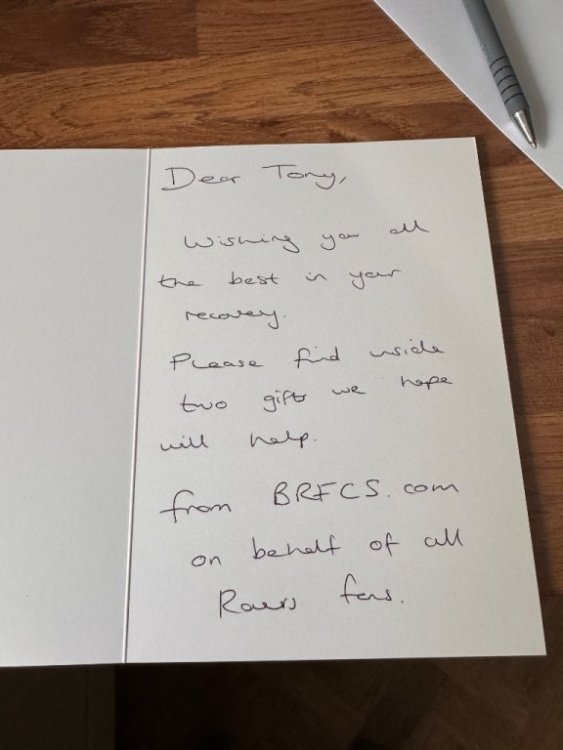 Dear Tony,
Wishing you all
the best in your
recovery.
Please find inside
two gifts we hope
will help.
from BRFCS.com
on behalf of all
Rovers fans.